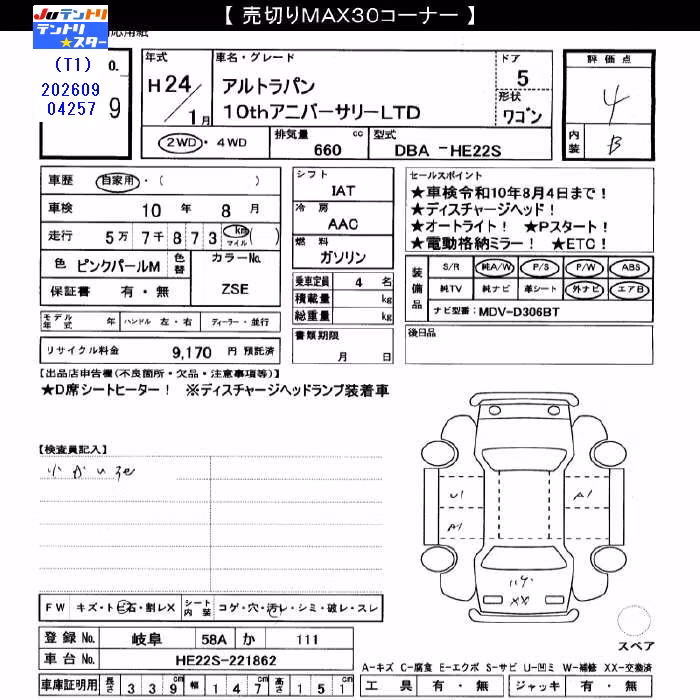 【 売切りMAX30コーナー 】
JUテントリ
テントリ
★スター
応用紙
(T1)
202609
04257
o.
9
年式
H24/1月
車名・グレード
アルトラパン
10thアニバーサリーLTD
ドア
5
形状
ワゴン
評価点
4
内装
B
2WD・4WD
排気量
660 cc
型式
DBA -HE22S
車歴 自家用・( )
車検 10年 8月
走行 5万 7千 8 7 3 km マイル ( )
色 ピンクパールM
色替
カラーNo.
ZSE
保証書 有・無
シフト
IAT
冷房
AAC
燃料
ガソリン
乗車定員 4 名
積載量 kg
総重量 kg
書類期限
月 日
セールスポイント
★車検令和10年8月4日まで!
★ディスチャージヘッド!
★オートライト! ★Pスタート!
★電動格納ミラー! ★ETC!
装備品
S/R 純A/W P/S P/W ABS
純TV 純ナビ 革シート 外ナビ エアB
ナビ型番: MDV-D306BT
モデル年式 年 ハンドル 左・右 ディーラー・並行
リサイクル料金 9,170 円 預託済
後日品
【出品店申告欄(不良箇所・欠品・注意事項等)】
★D席シートヒーター! ※ディスチャージヘッドランプ装着車
【検査員記入】
小かいろ
U1
A1
A1
XX
FW キズ・トビ石・割レX
シート内装 コゲ・穴・汚レ・シミ・破レ・スレ
登録No. 岐阜 58A か 111
車台No. HE22S-221862
車庫証明用 長さ 339cm 幅 147cm 高さ 151cm
スペア
A-キズ C-腐食 E-エクボ S-サビ U-凹ミ W-補修 XX-交換済
工具 有・無 ジャッキ 有・無